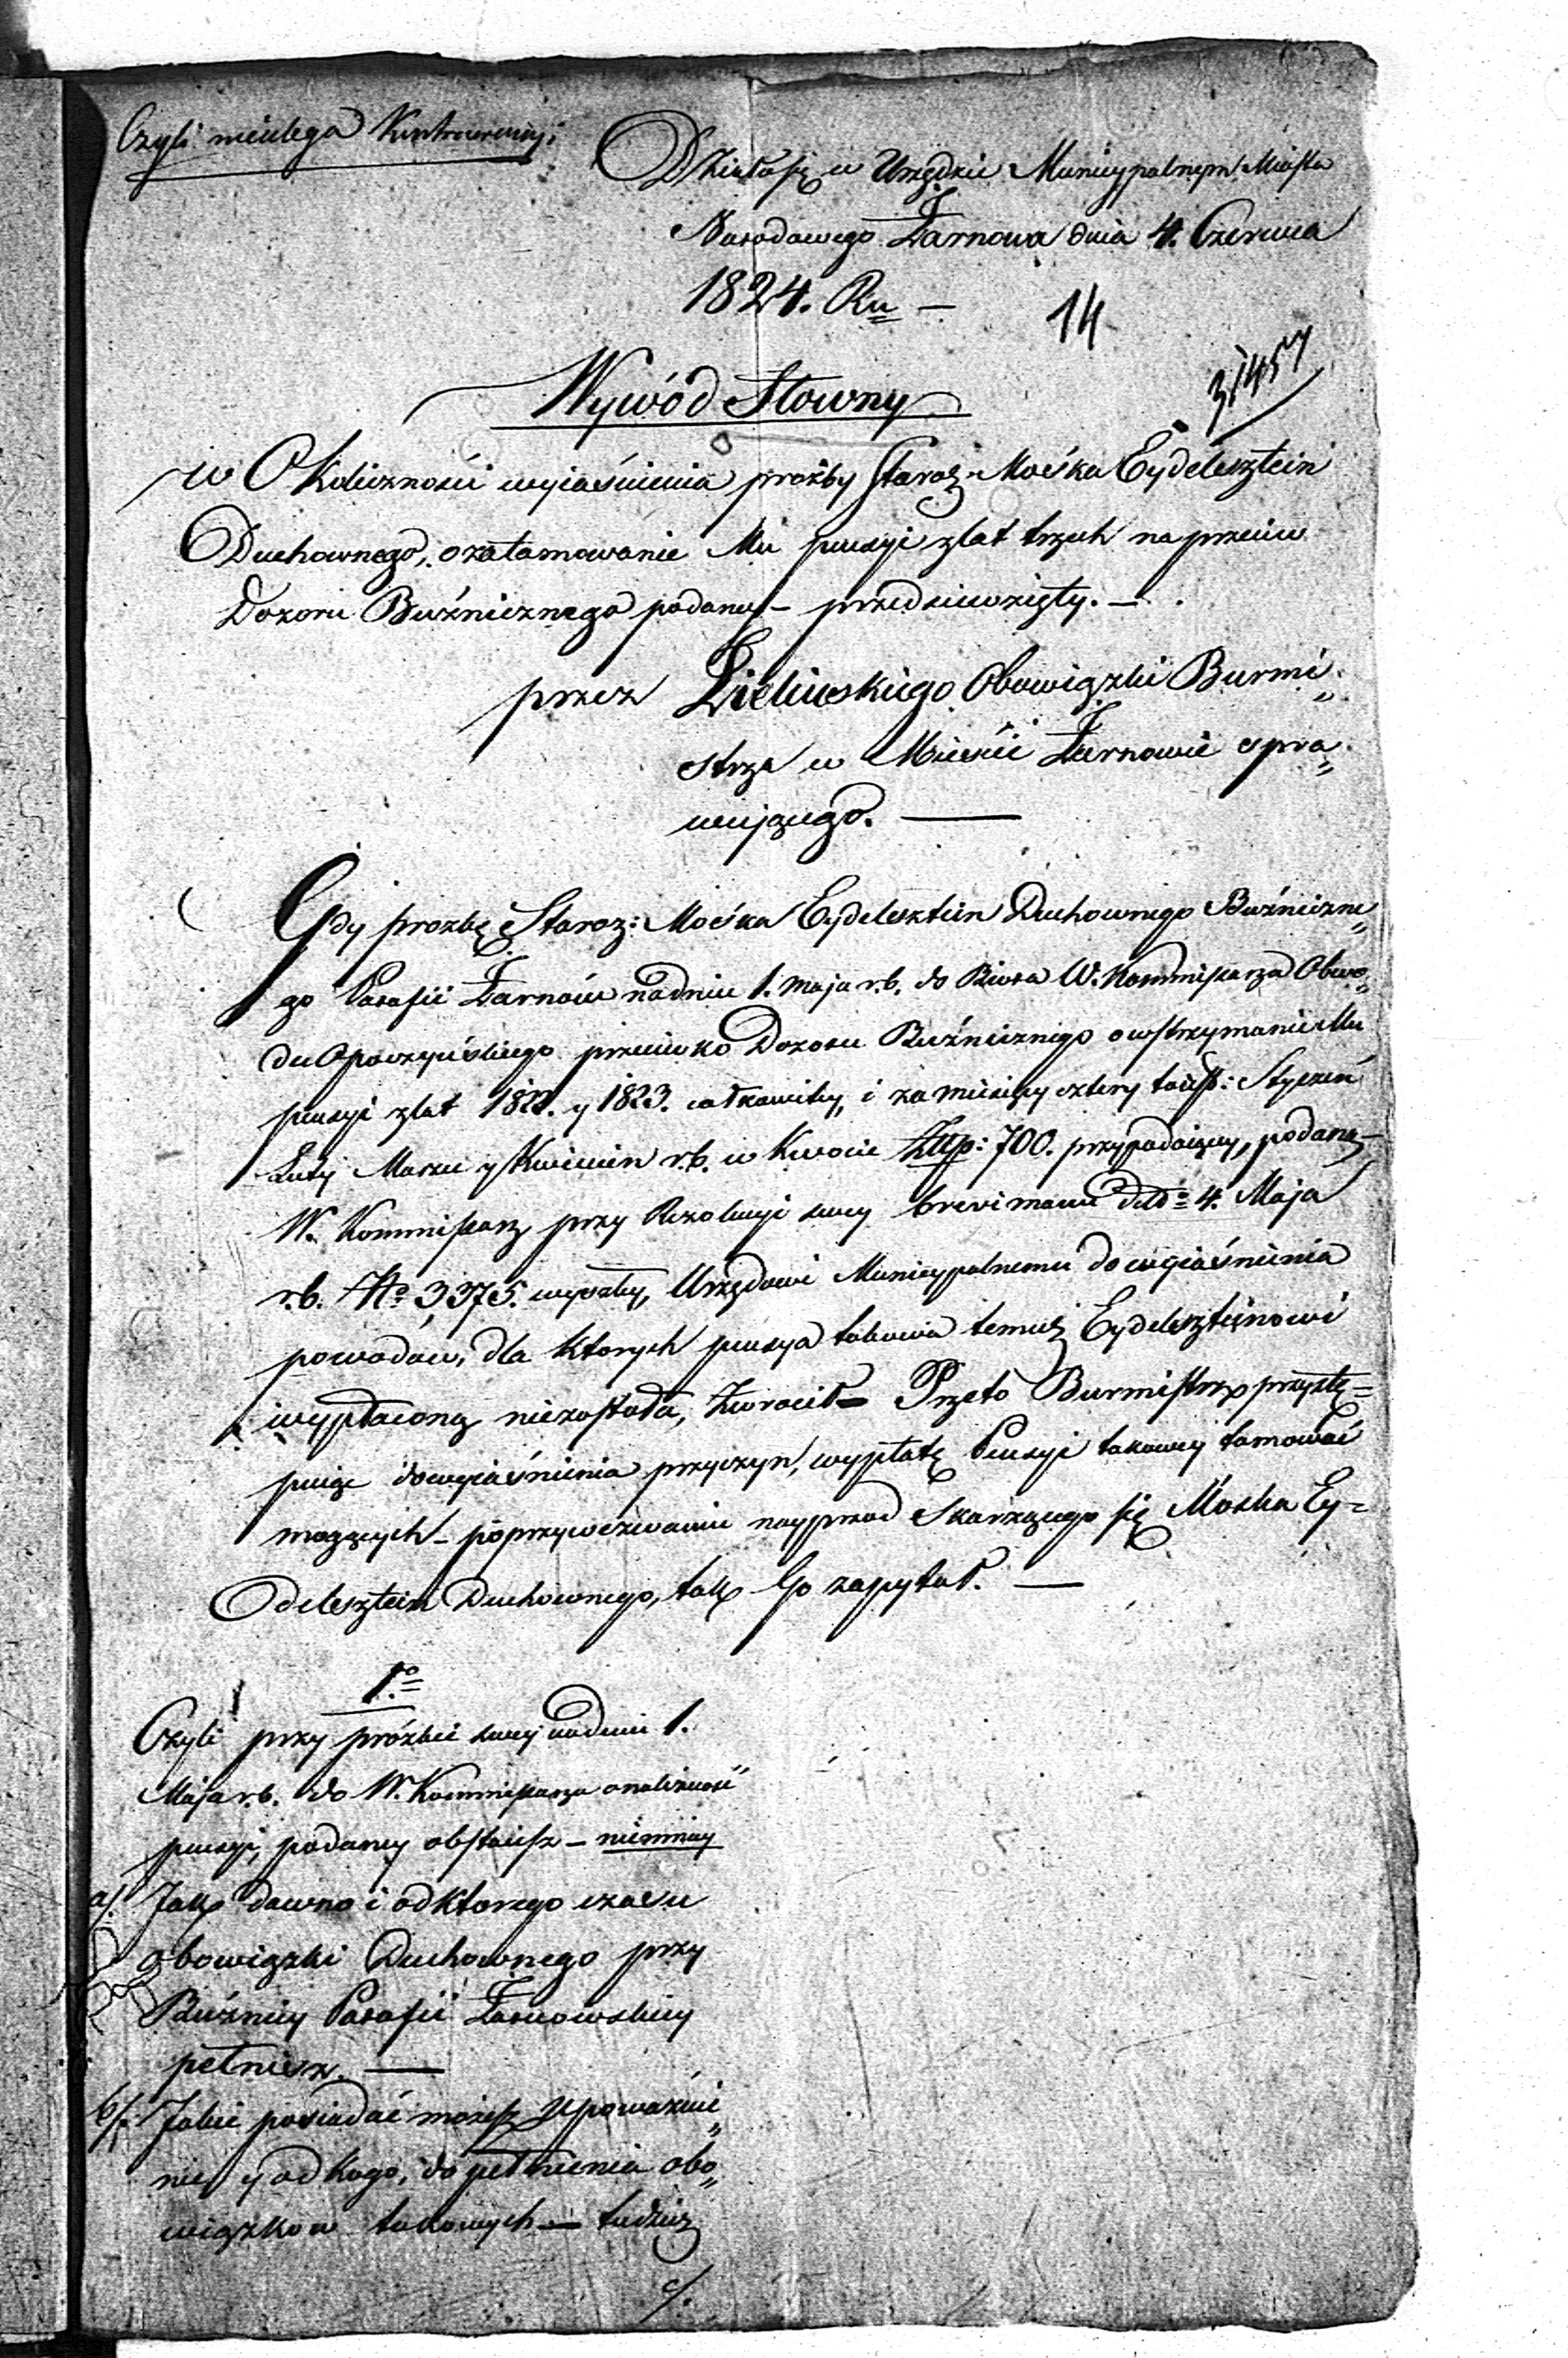 Czyli nieulega Kontrawencyi
Działo się w Urzędzie Municypalnym Miasta
Narodowego Żarnowa dnia 4. Czerwca
1824. Ru —
14
Wywód Słowny
w Okoliczności wyiaśnienia prożby Staroz. Mośka Eydelesztein
Duchownego, o zatamowanie Mu pensyi z lat trzech na przeciw
Dozoru Bużnicznego podaney — przedsiewzięty. —
przez Zielinskiego Obowiązki Burmi„
strza w Mieście Żarnowie spra„
wuiącego. —
Gdy prozbę Staroz: Mośka Eydelesztein Duchownego Bużniczne„
go Parafii Żarnów nadniu 1. Maja r.b. do Biora W. Kommissarza Obwo„
du Opoczyńskiego przeciwko Dozoru Bużnicznego o wstrzymanie Mu
pensyi z lat 1822. y 1823. całkowitey, i za miesięcy cztery to iest: Styczeń
Luty Marzec y Kwiecień r.b. w Kwocie Złłp: 700. przypadaiącey, podaną —
W. Kommissarz przy Rezolucyi swey brevi manu ddto 4. Maja
r.b. No 3375. wyszłey, Urzędowi Municypalnemu do wyiaśnienia
powodów, dla ktorych pensya takowa temuż Eydeleszteinowi
wypłaconą niezostała, Zwrocił — Przeto Burmistrz przystę=
puiąc do wyiaśnienia przyczyn, wypłatę Pensyi takowey tamować
mogących — po przywezwaniu nayprzod Skarzącego się Moska Ey=
delesztein Duchownego, tak Go zapytał. —
1o
Czyli przy próżbie swey nadniu 1.
Maja r.b. do W. Kommissarza o należność
pensyi, podaney obstaiesz — niemniey
a/. Jak dawno i od ktorego czasu
obowiązki Duchownego przy
Bużnicy Parafii Żarnowskiey
pełnisz. —
b/. Jakie posiadać możesz Upoważnie„
nie y od kogo, do pełnienia obo„
wiązkow takowych — tudzież
c/.